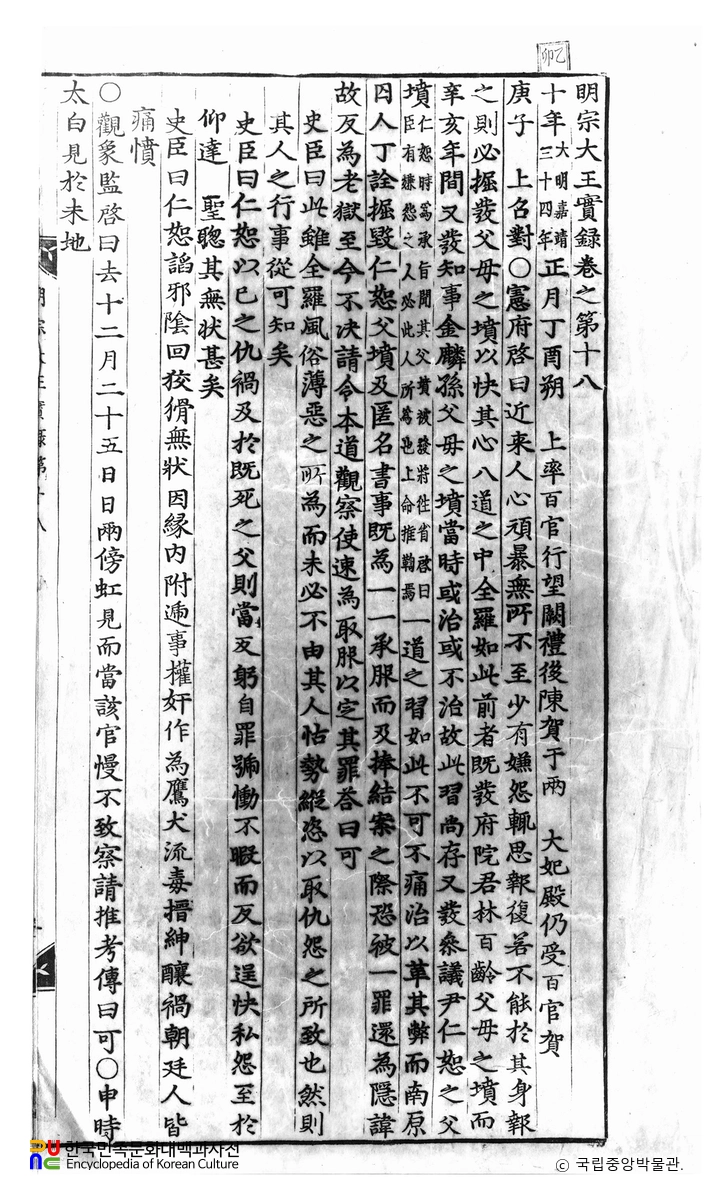 乙卯
明宗大王實録卷之第十八
十年大明嘉靖三十四年正月丁酉朔 上率百官行望闕禮後陳賀于兩 大妃殿仍受百官賀
庚子 上召對○憲府啓曰近来人心頑暴無所不至少有嫌怨輒思報復若不能於其身報
之則必掘發父母之墳以快其心八道之中全羅如此前者既發府院君林百齡父母之墳而
辛亥年間又發知事金麟孫父母之墳當時或治或不治故此習尚存又發叅議尹仁恕之父
墳仁恕時爲承旨聞其父墳被發將往省啟曰臣有嫌怨之人必此人所爲也上命推鞫焉一道之習如此不可不痛治以革其弊而南原
囚人丁詮掘毀仁恕父墳及匿名書事既為一一承服而及捧結案之際恐被一罪還為隱諱
故反為老獄至今不決請令本道觀察使速為取服以定其罪答曰可
史臣曰此雖全羅風俗薄惡之所為而未必不由其人怙勢縱恣以取仇怨之所致也然則
其人之行事從可知矣
史臣曰仁恕以己之仇禍及於既死之父則當反躬自罪號慟不暇而反欲逞快私怨至於
仰達 聖聦其無状甚矣
史臣曰仁恕謟邪陰回狡猾無状因緣内附逓事權奸作為鷹犬流毒搢紳釀禍朝廷人皆
痛憤
○觀象監啓曰去十二月二十五日日兩傍虹見而當該官慢不致察請推考傳曰可○申時
太白見於未地
한국민족문화대백과사전
Encyclopedia of Korean Culture
© 국립중앙박물관.